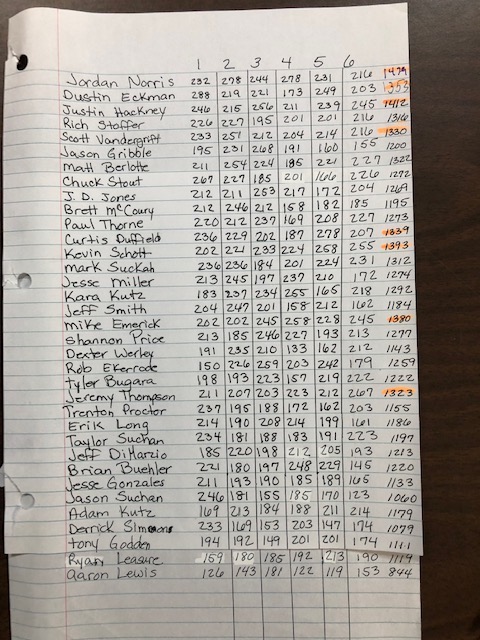 1 2 3 4 5 6
Jordan Norris 232 278 244 278 231 216 1479
Dustin Eckman 288 219 221 173 249 203 1353
Justin Hackney 246 215 256 211 239 245 1412
Rich Stoffer 226 227 195 201 201 216 1316
Scott Vandergrift 233 251 212 204 214 216 1330
Jason Gribble 195 231 268 191 160 155 1200
Matt Berlotte 211 254 224 185 221 227 1322
Chuck Stout 267 227 185 201 166 226 1272
J. D. Jones 212 211 253 217 172 204 1269
Brett McCoury 212 246 212 158 182 185 1195
Paul Thorne 220 212 237 169 208 227 1273
Curtis Duffield 236 229 202 187 278 207 1339
Kevin Schott 202 221 233 224 258 255 1393
Mark Suckah 236 236 184 201 224 231 1312
Jesse Miller 213 245 197 237 210 172 1274
Kara Kutz 183 237 234 255 165 218 1292
Jeff Smith 204 247 201 158 212 162 1184
Mike Emerick 202 202 245 258 228 245 1380
Shannon Price 213 185 246 227 193 213 1277
Dexter Werley 191 235 210 133 162 212 1143
Rob Ekerrode 150 226 259 203 242 179 1259
Tyler Bugara 198 193 223 157 219 222 1222
Jeremy Thompson 211 207 203 223 212 267 1323
Trenton Proctor 237 195 188 172 162 203 1155
Erik Long 214 190 208 214 199 161 1186
Taylor Suchan 234 181 188 183 191 223 1197
Jeff DiMarzio 185 220 198 212 205 193 1213
Brian Buehler 221 180 197 248 229 145 1220
Jesse Gonzales 211 193 190 185 189 165 1133
Jason Suchan 246 181 155 185 170 123 1060
Adam Kutz 169 213 184 188 211 214 1179
Derrick Simmons 233 169 153 203 147 174 1079
Tony Godden 194 192 149 201 201 174 1111
Ryan Leasure 159 180 185 192 213 190 1119
Aaron Lewis 126 143 181 122 119 153 844